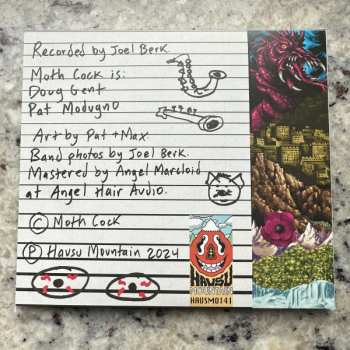 Recorded by Joel Berk.
Moth Cock is:
Doug Gent
Pat Modugno
Art by Pat + Max
Band photos by Joel Berk.
Mastered by Angel Marcloid
at Angel Hair Audio.
© Moth Cock
℗ Hausu Mountain 2024
HAUSU
MOUNTAIN
HAUSMO141